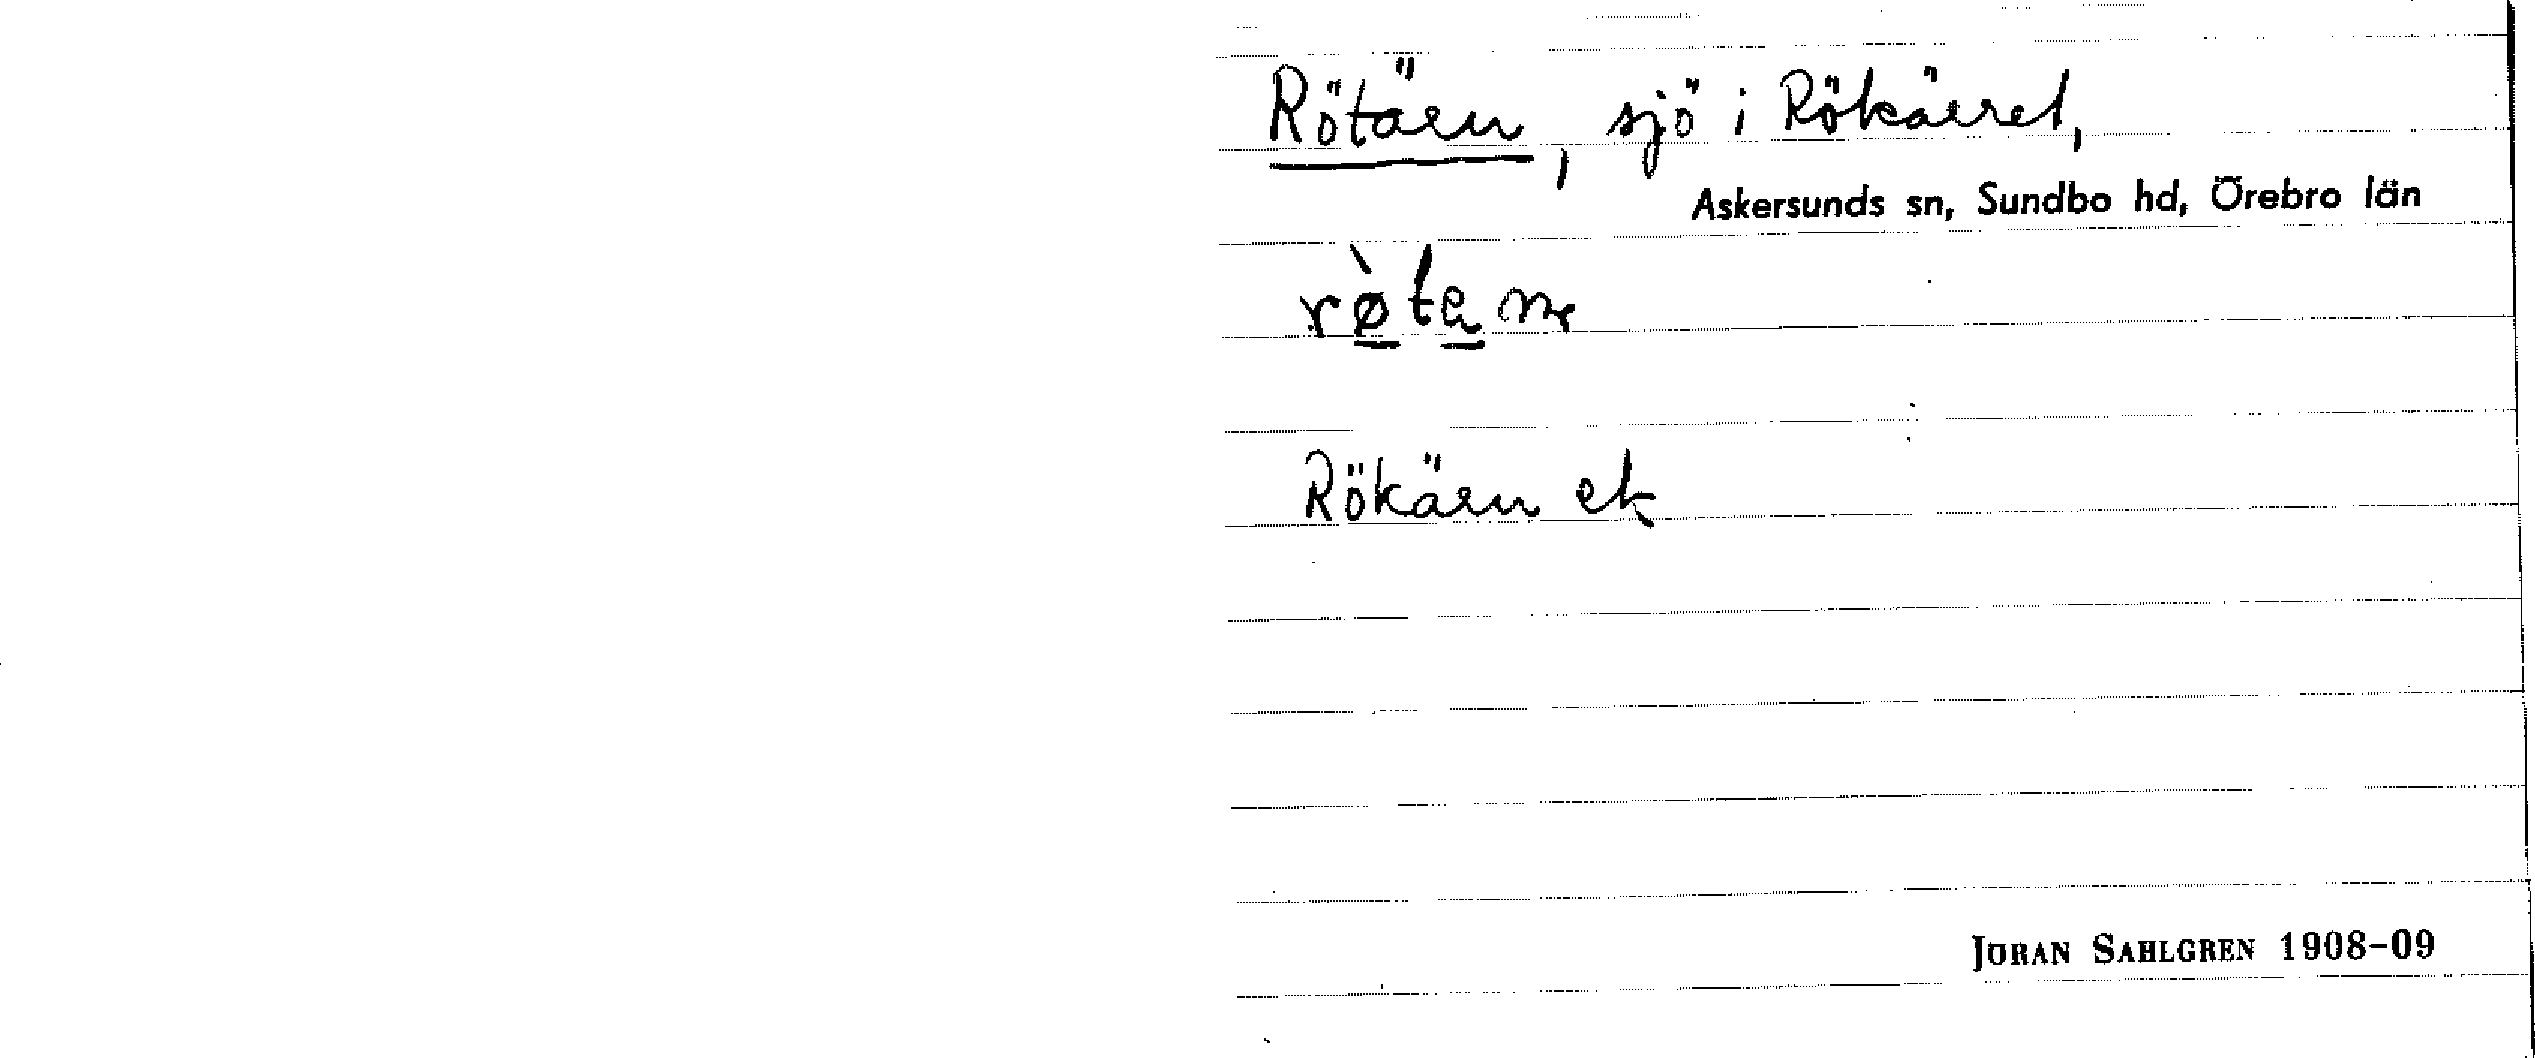 Rötärn, sjö i Rökärret,
Askersunds sn, Sundbo hd, Örebro län
Rökärn ek
JÖRAN SAHLGREN 1908-09